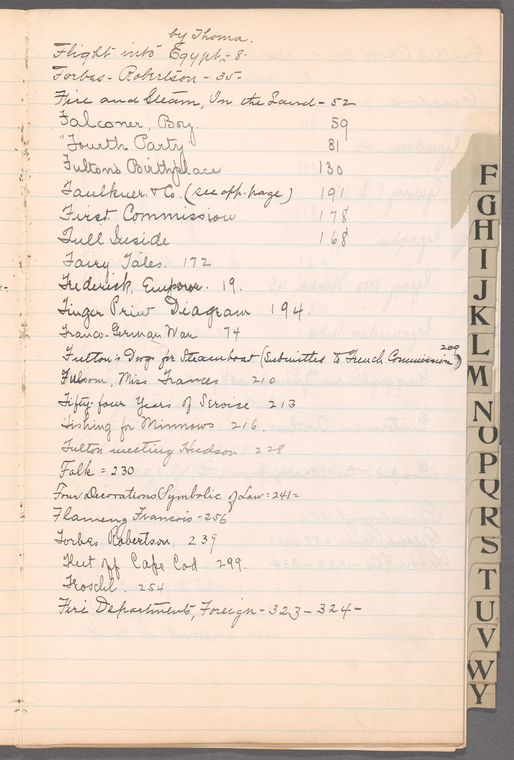 by Thoma.
Flight into Egypt - 8
Forbes-Robertson - 35-
Fire and Steam, In the Land - 52
Falconer, Boy. 59
"Fourth Party 81
Fulton's Birthplace 130
Faulkner & Co. (see opp. page) 191
First Commission 178
Full Inside 168
Fairy Tales. 172
Frederick, Emperor. 19.
Finger Print Diagram 194.
Franco-German War 74
Fulton's Dwgs for Steamboat (Submitted to French Commission) 209
Folsom, Miss Frances 210
Fifty-four Years of Service 213
Fishing for Minnows 216.
Fulton meeting Hudson 228
Falk = 230
Four Decorations Symbolic of Law = 241=
Flameng Francois - 256
Forbes Robertson. 239
Fleet off Cape Cod 299.
Froschl. 254
Fire Department, Foreign - 323 - 324 -
F
G
H
I
J
K
L
M
N
O
P
Q
R
S
T
U
V
W
Y